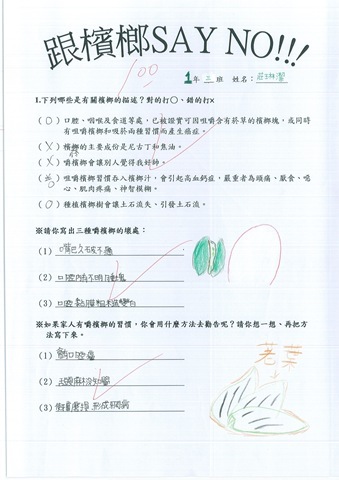 跟檳榔SAY NO!!!
100
1年三班 姓名:莊琳潔
1.下列哪些是有關檳榔的描述?對的打○、錯的打×
(○)口腔、咽喉及食道等處,已被證實可因咀嚼含有荖葉的檳榔塊,或同時
有咀嚼檳榔和吸菸兩種習慣而產生癌症。
(×)檳榔的主要成份是尼古丁和焦油。
(×)嚼檳榔會讓別人覺得我好帥。
(○)咀嚼檳榔習慣吞入檳榔汁,會引起高血鈣症,嚴重者為頭痛、厭食、噁
心、肌肉疼痛、神智模糊。
(○)種植檳榔樹會讓土石流失、引發土石流。
※請你寫出三種嚼檳榔的壞處:
(1)嘴巴久破不癒
(2)口腔內有不明
(3)口腔黏膜粗糙變白
※如果家人有嚼檳榔的習慣,你會用什麼方法去勸告呢?請你想一想、再把方
法寫下來。
荖葉
(1)口腔癌
(2)麻木沒知覺
(3)形成牙周病